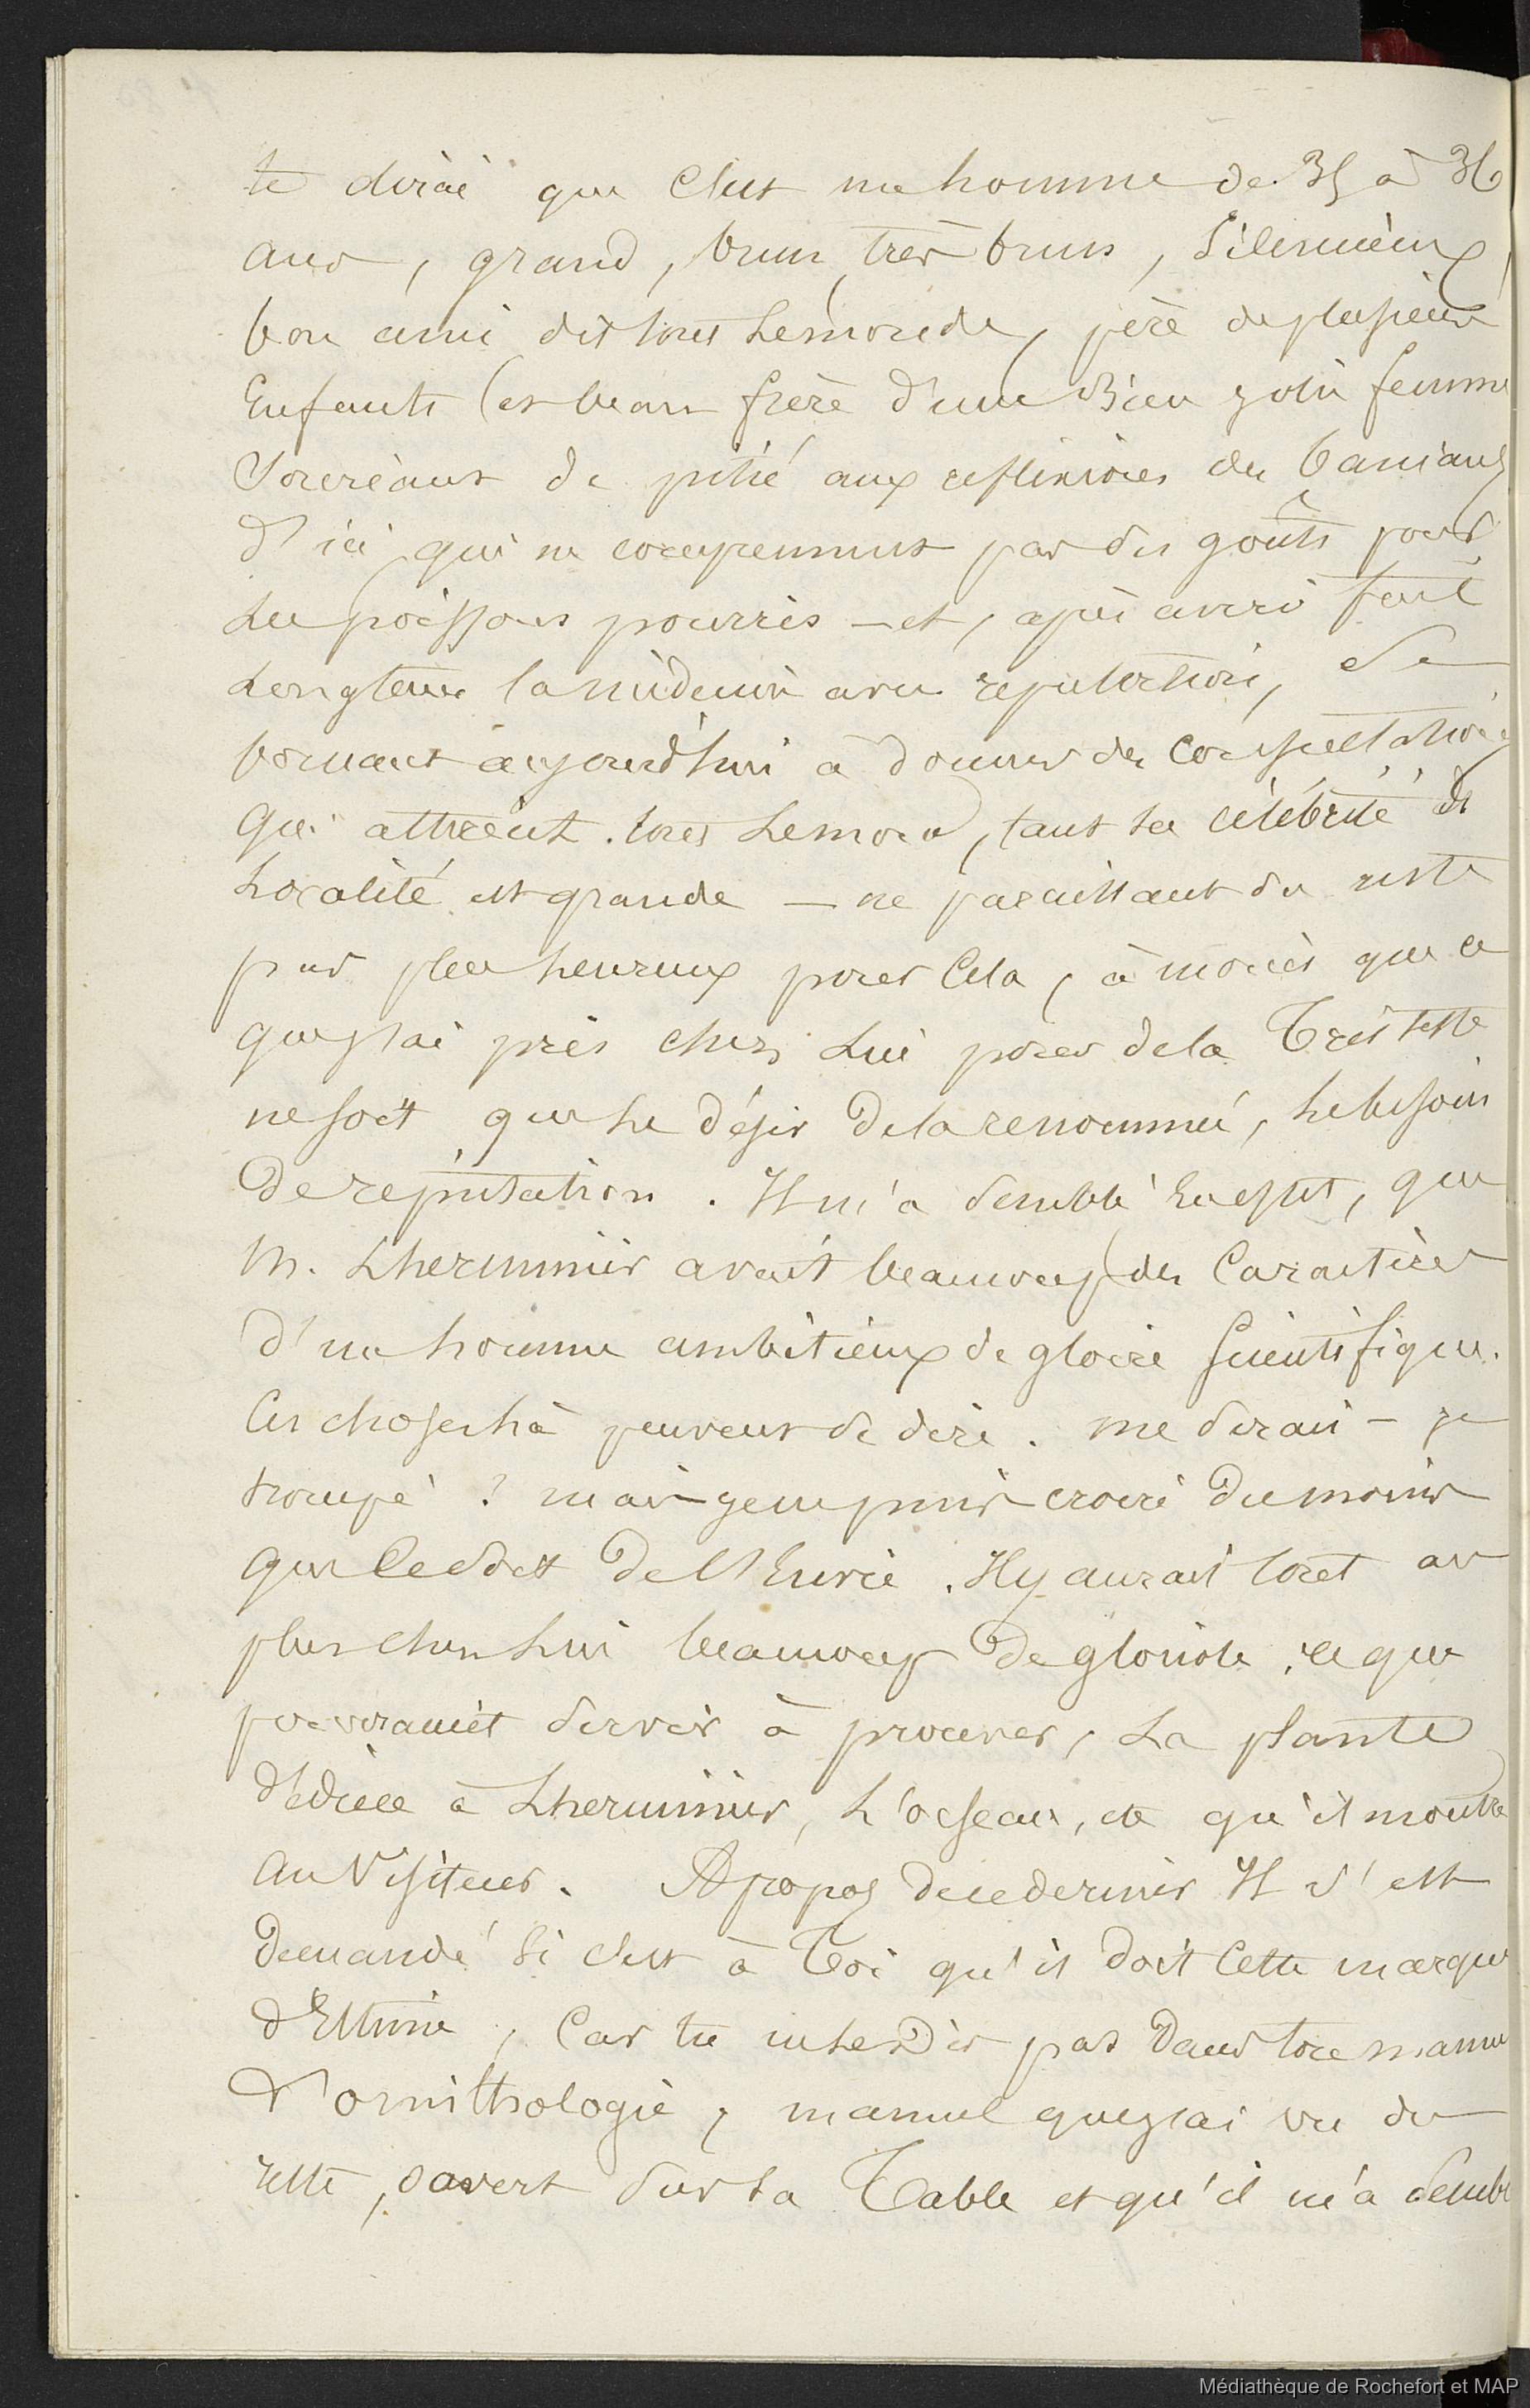 te dirai que c'est un homme de 35 à 36
ans, grand, brun, très brun, silencieux,
bon ami dit tout le monde, père de plusieurs
Enfants (et beau frère d'une Bien jolie femme
Souriant de pitié aux reflexions des
d'ici qui ne comprennent pas des goûts pour
les poissons pourris – et, après avoir fait
longtems la médecine avec reputation, se
bornant aujourd'hui à donner des consultations
qui attirent tout le monde, tant sa célébrité de
localité est grande – ne paraissant du reste
pas plus heureux pour cela, à moins que ce
que j'ai pris chez lui pour de la Tristesse
ne soit que le désir de la renommée, le besoin
de reputation. Il m'a semblé En effet, que
M. Lherminier avait beaucoup des Caractères
d'un homme ambitieux de gloire scientifique.
Ces choses là peuvent se dire. me serais-je
trompé ? mais je ne puis croire du moins
que ce soit de l'Envie. Il y aurait tout au
plus chez lui beaucoup de gloriole, ce que
pourraient servir à prouver, la plante
dédiée à Lherminier, l'oiseau, etc qu'il montre
au Visiteur. A propos de ce dernier Il s'est
demandé si c'est à Toi qu'il doit cette marque
d'Estime, Car tu ne le dis pas dans ton manuel
d'ornithologie, manuel que j'ai vu du
reste, ouvert sur sa Table et qu'il m'a semblé
Médiathèque de Rochefort et MAP